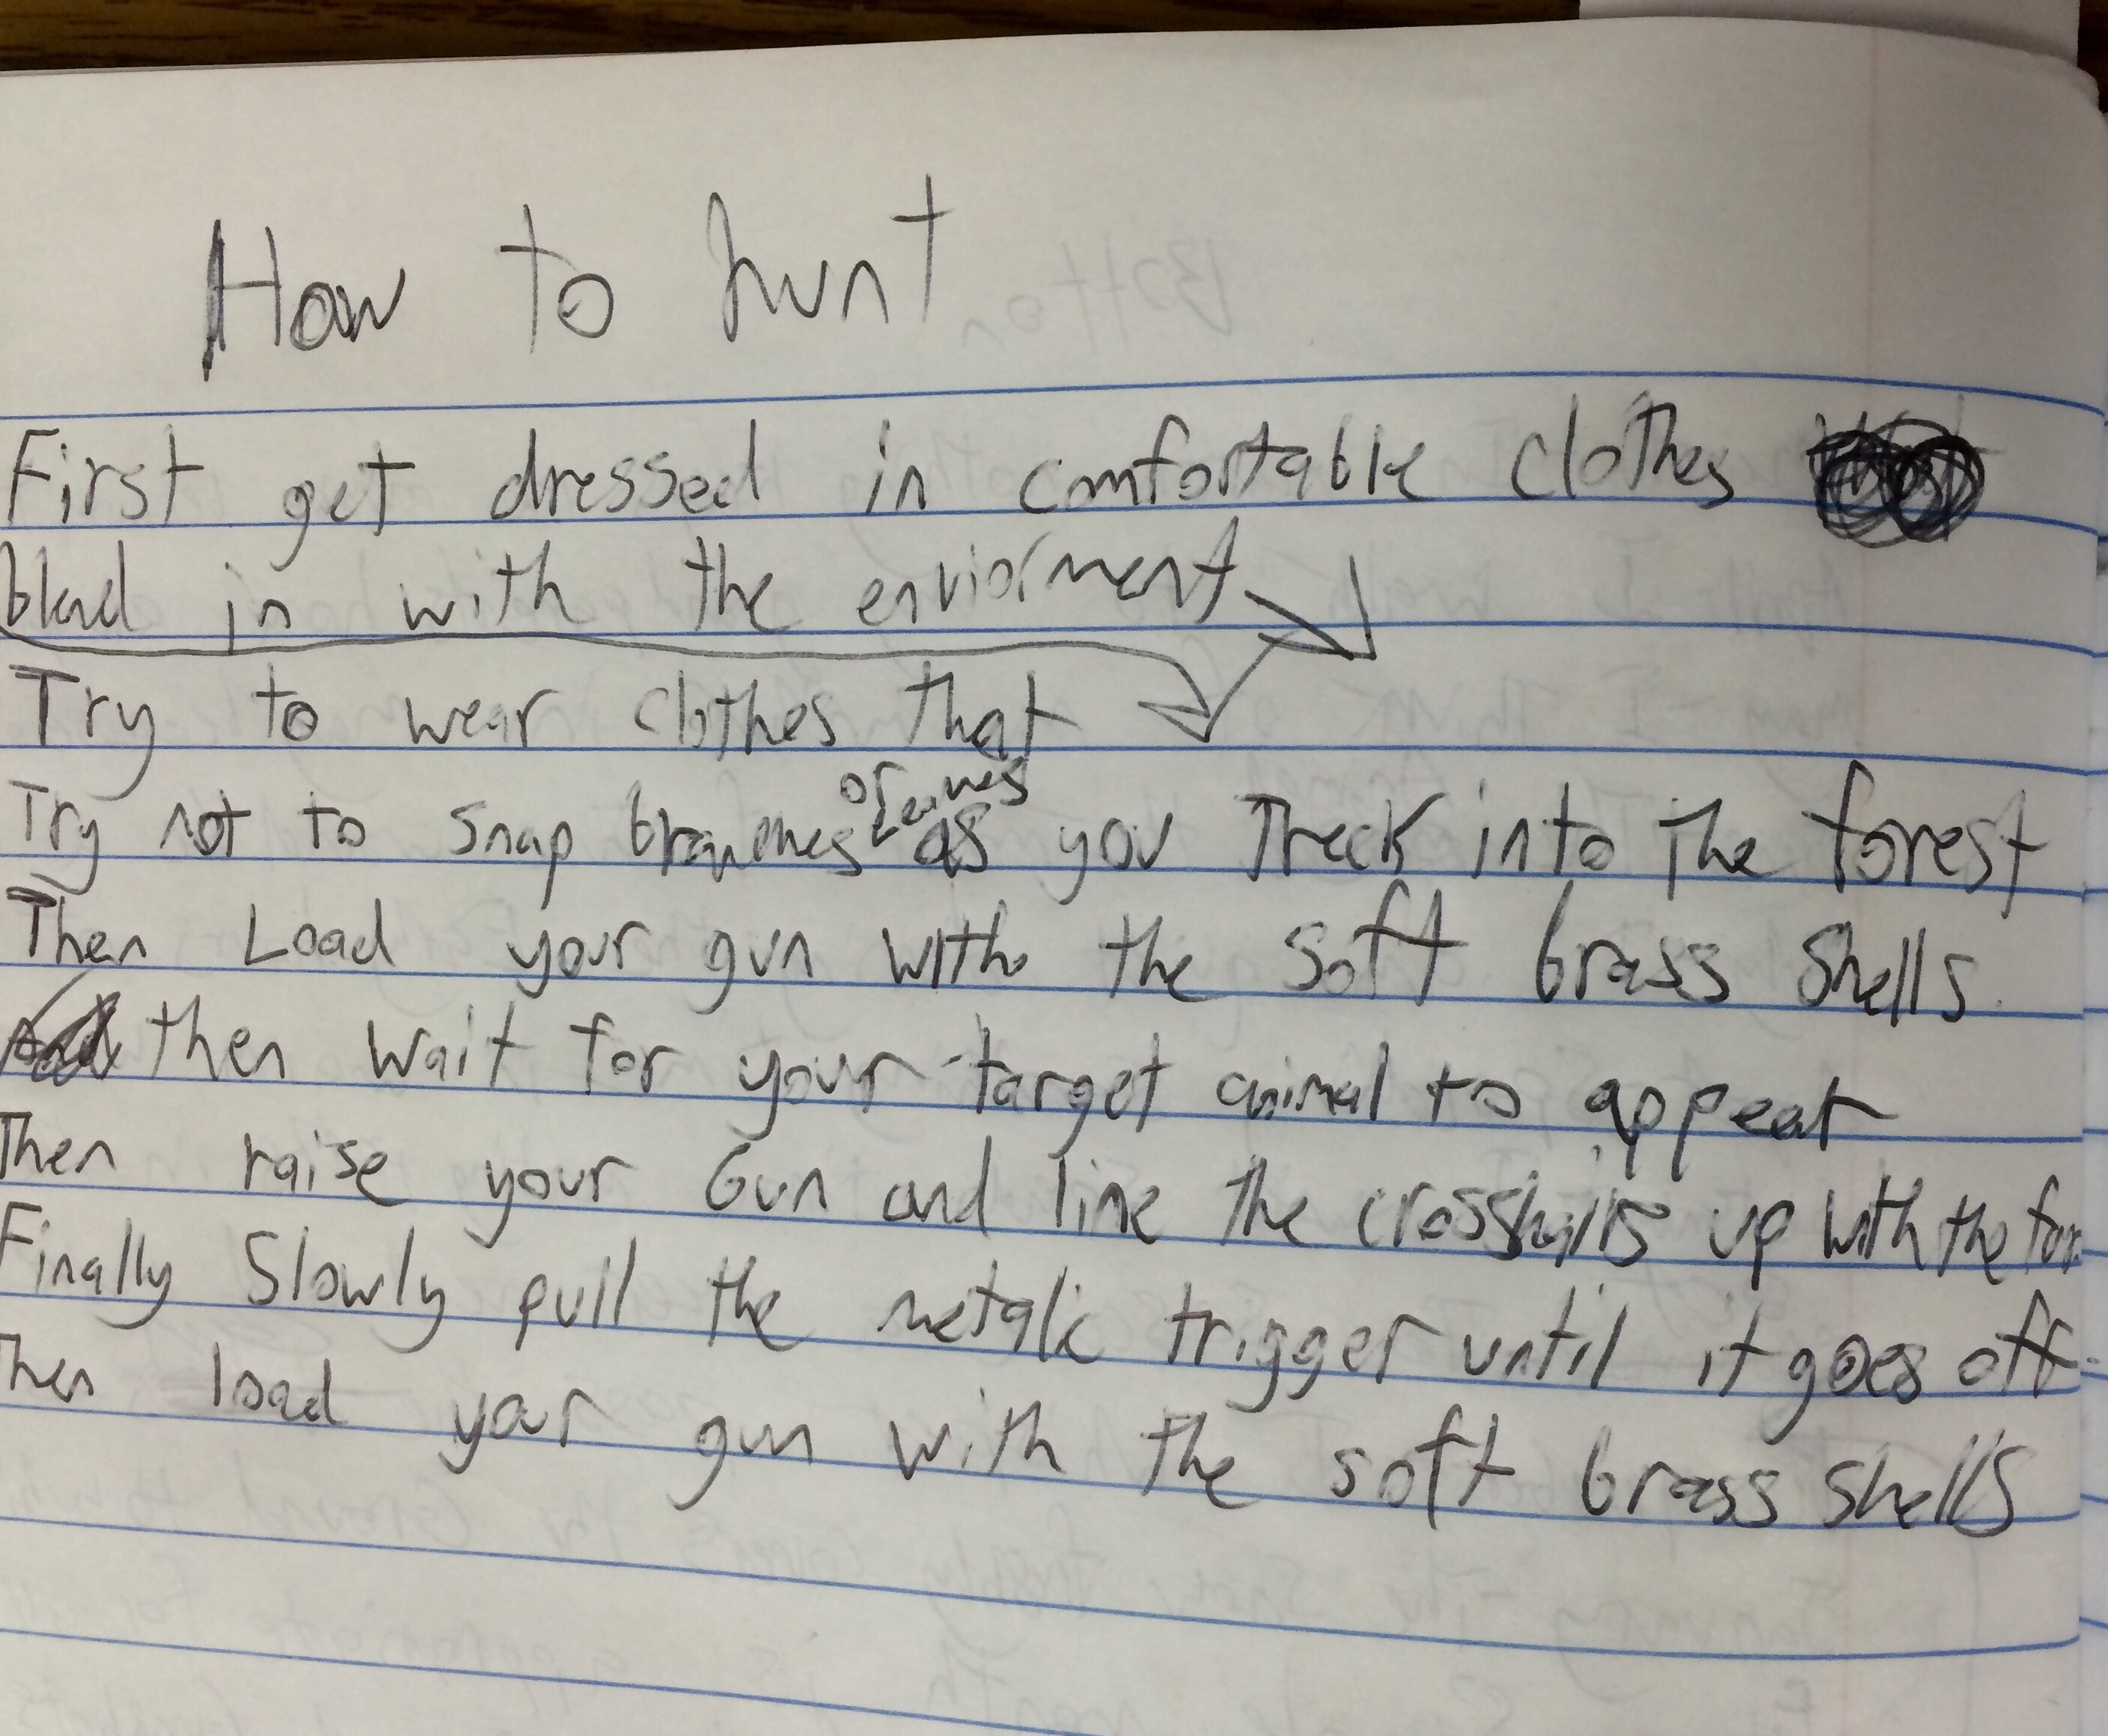 How to hunt
First get dressed in comfortable clothes
blend in with the enviorment
Try to wear clothes that
or leaves
Try not to snap branches as you Treck into The forest
Then Load your gun with the soft brass shells.
then wait for your target animal to appear
Then raise your Gun and line the crosshairs up with the tar
Finally Slowly pull the metalic trigger until it goes off.
Then load your gun with the soft brass shells